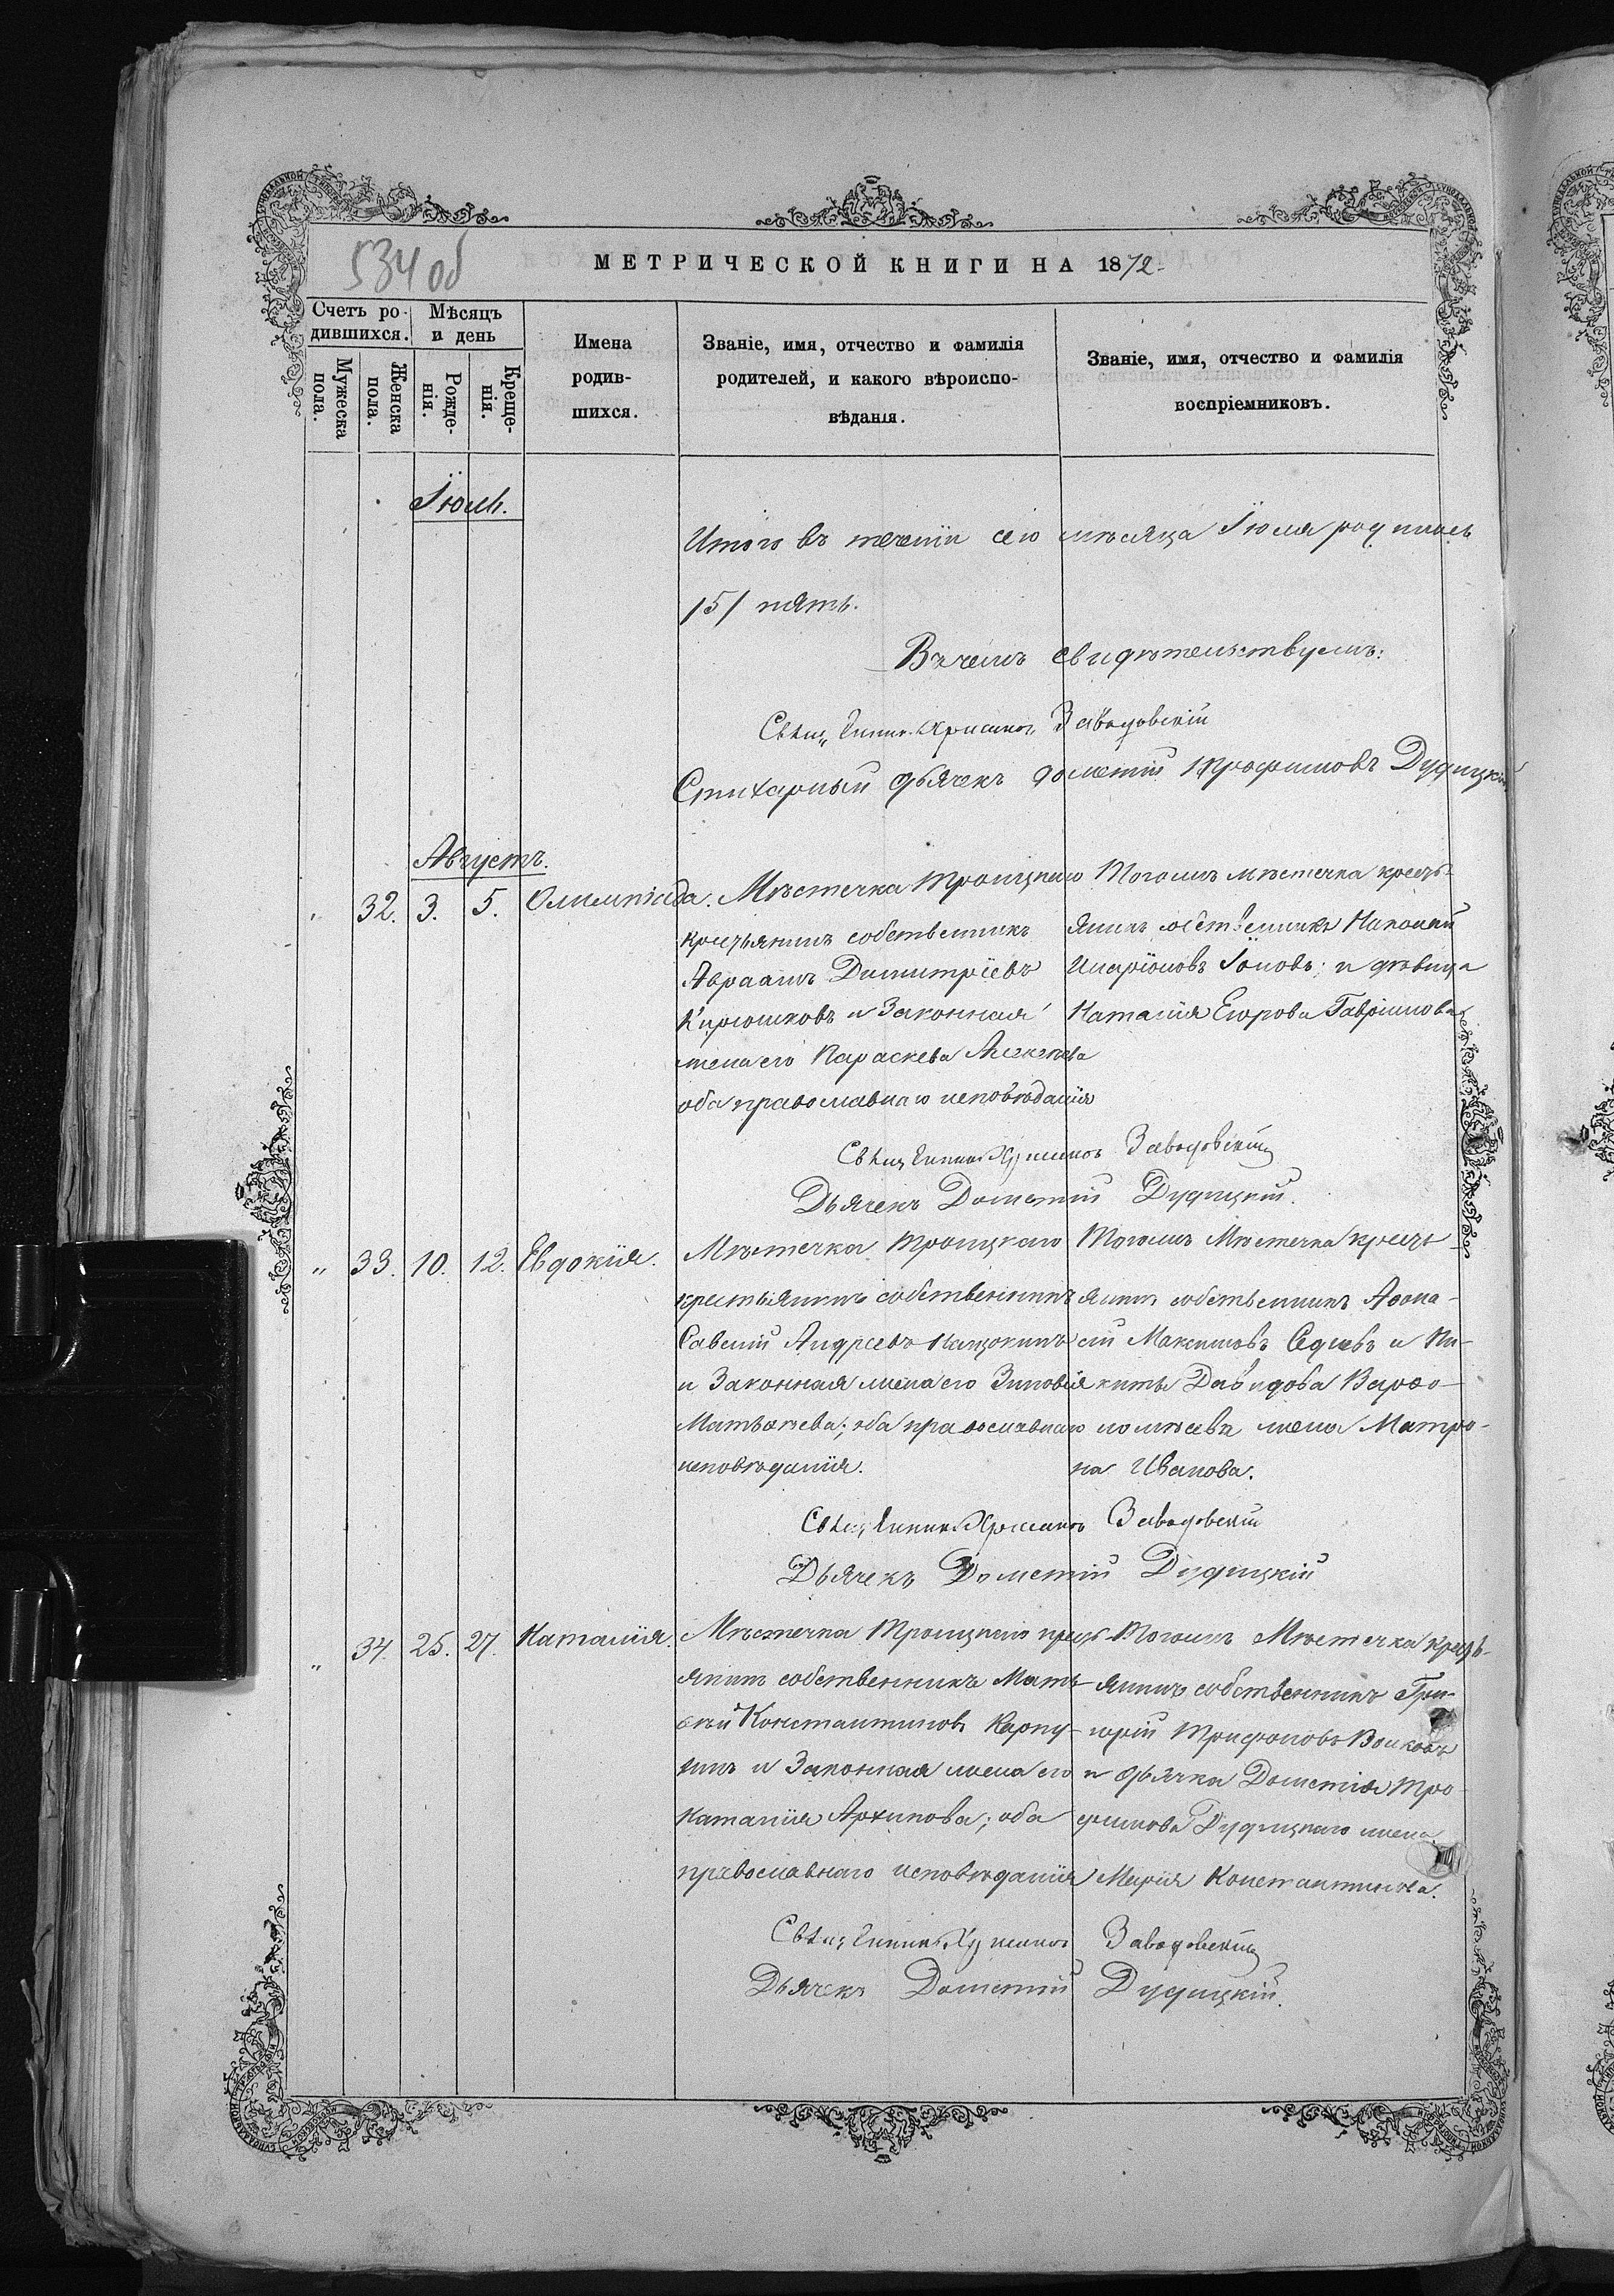 534 об
МЕТРИЧЕСКОЙ КНИГИ НА 1872
Счетъ ро-
дившихся.
Мѣсяцъ
и день
Мужеска
пола.
Женска
пола.
Рожде-
нія.
Креще-
нія.
Имена
родив-
шихся.
Званіе, имя, отчество и фамилія
родителей, и какого вѣроиспо-
вѣданія.
Званіе, имя, отчество и фамилія
воспріемниковъ.
Іюль.
Итого въ теченіи сего мѣсяца Іюля родилось
/5/ пять.
Въ чемъ свидѣтельствуемъ:
Завадовскій
Стихарный дьячекъ Дометій Трофимовъ Дудицкій
Августъ.
" 32. 3. 5. Олимпіада.
Мѣстечка Троицкаго
крестьянинъ собственникъ
Авраамъ Димитріевъ
Кирюшковъ и Законная
жена его Параскева
оба православнаго исповѣданія
Тогожъ мѣстечка кресть-
янинъ собственникъ
Иларіоновъ Іоновъ; и дѣвица
Наталія Егорова Гаврилова
Завадовскій
Дьячекъ Дометій Дудицкій.
" 33. 10. 12. Евдокія.
Мѣстечка Троицкаго
крестьянинъ собственникъ
Савелій Андреевъ
и Законная жена его Зиновія
Матѳѣева; оба православнаго
исповѣданія.
Тогожъ Мѣстечка кресть-
янинъ собственникъ Аѳона-
сій Максимовъ и Ни-
киты Давидова Варѳо-
ломѣева жена Матро-
на Иванова.
Завадовскій
Дьячекъ Дометій Дудицкій
" 34. 25. 27. Наталія.
Мѣстечка Троицкаго кресть-
янинъ собственникъ Мать-
ѳѣй Константиновъ Карпу-
хинъ и Законная жена его
Наталія Архипова; оба
православнаго исповѣданія
Тогожъ Мѣстечка кресть-
янинъ собственникъ Гри-
горій Трифоновъ Волковъ
и дьячка Дометія Тро-
фимова Дудицкаго жена
Марія Константинова.
Завадовскій
Дьячекъ Дометій Дудицкій.